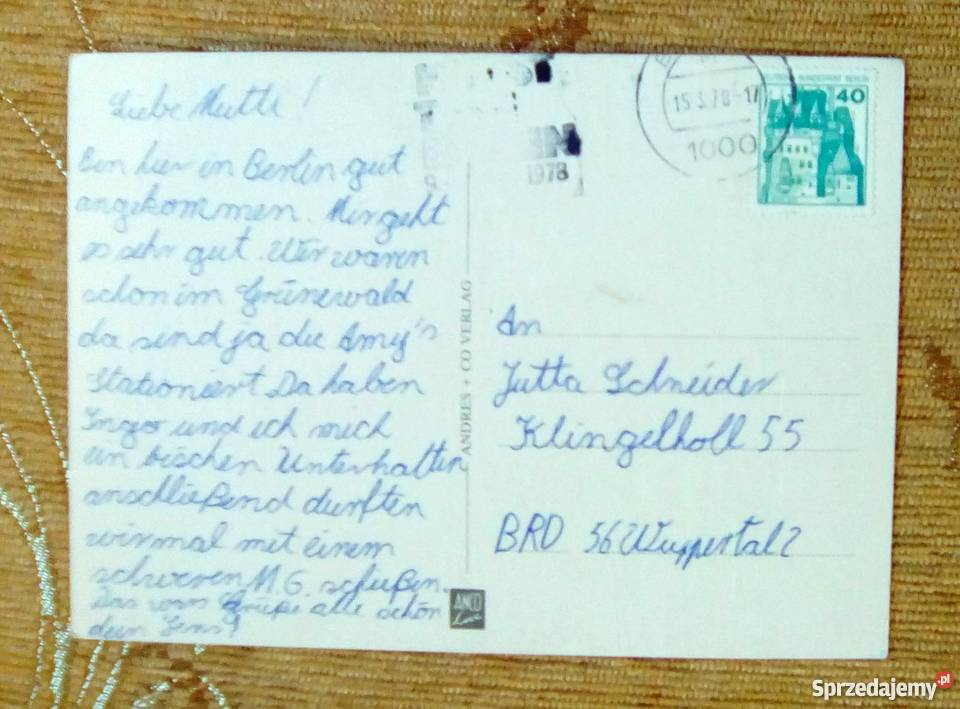 Liebe Mutti!
Bin hier in Berlin gut
angekommen. Mir geht
es sehr gut. Wir waren
schon im Grünewald
da sind ja die Amy's
Stationiert Da haben
Ingo und ich mich
ein bischen Unterhalten
anschließend durften
wir mal mit einem
schweren M.G. schießen.
Das wars Grüße alle schön
dein Jens!
ANDRES + CO VERLAG
ANCO
1978
15.3.78-17
1000
DEUTSCHE BUNDESPOST BERLIN
40
An
Jutta Schneider
Klingelholl 55
BRD 56 Wuppertal 2
Sprzedajemy.pl